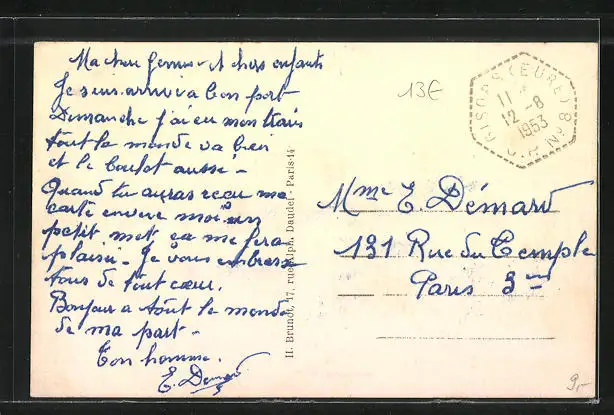 Ma chère femme et chers enfants
Je suis arrivé a bon port
Dimanche j'ai eu mon train
tout le monde va bien
et le boulot aussi -
Quand tu auras reçu ma
carte envoie moi un
petit mot ça me fera
plaisir - Je vous embrasse
tous de tout cœur.
Bonjour a tout le monde
de ma part -
Ton homme.
E. Demard
H. Brunot, 17, rue Alph. Daudet - Paris-14
13E
(EURE)
11 *
12 - 8
1953
Mme E. Démard
131 Rue du Temple
Paris 3em
9,-